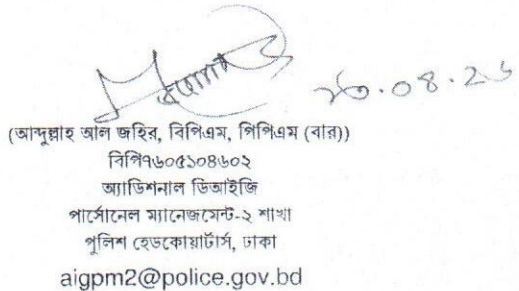 ২৩.০৪.২৬
(আব্দুল্লাহ আল জহির, বিপিএম, পিপিএম (বার))
বিপি৭৬০৫১০৪৬০২
অ্যাডিশনাল ডিআইজি
পার্সোনেল ম্যানেজমেন্ট-২ শাখা
পুলিশ হেডকোয়ার্টার্স, ঢাকা
aigpm2@police.gov.bd